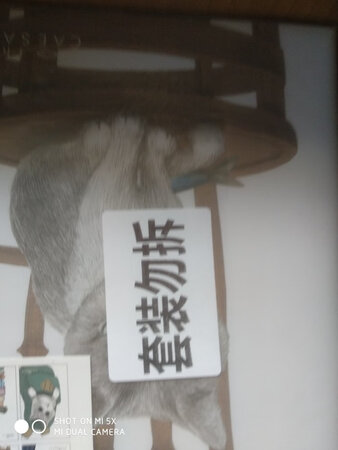 套装勿拆
CAESA
SHOT ON MI 5X
MI DUAL CAMERA